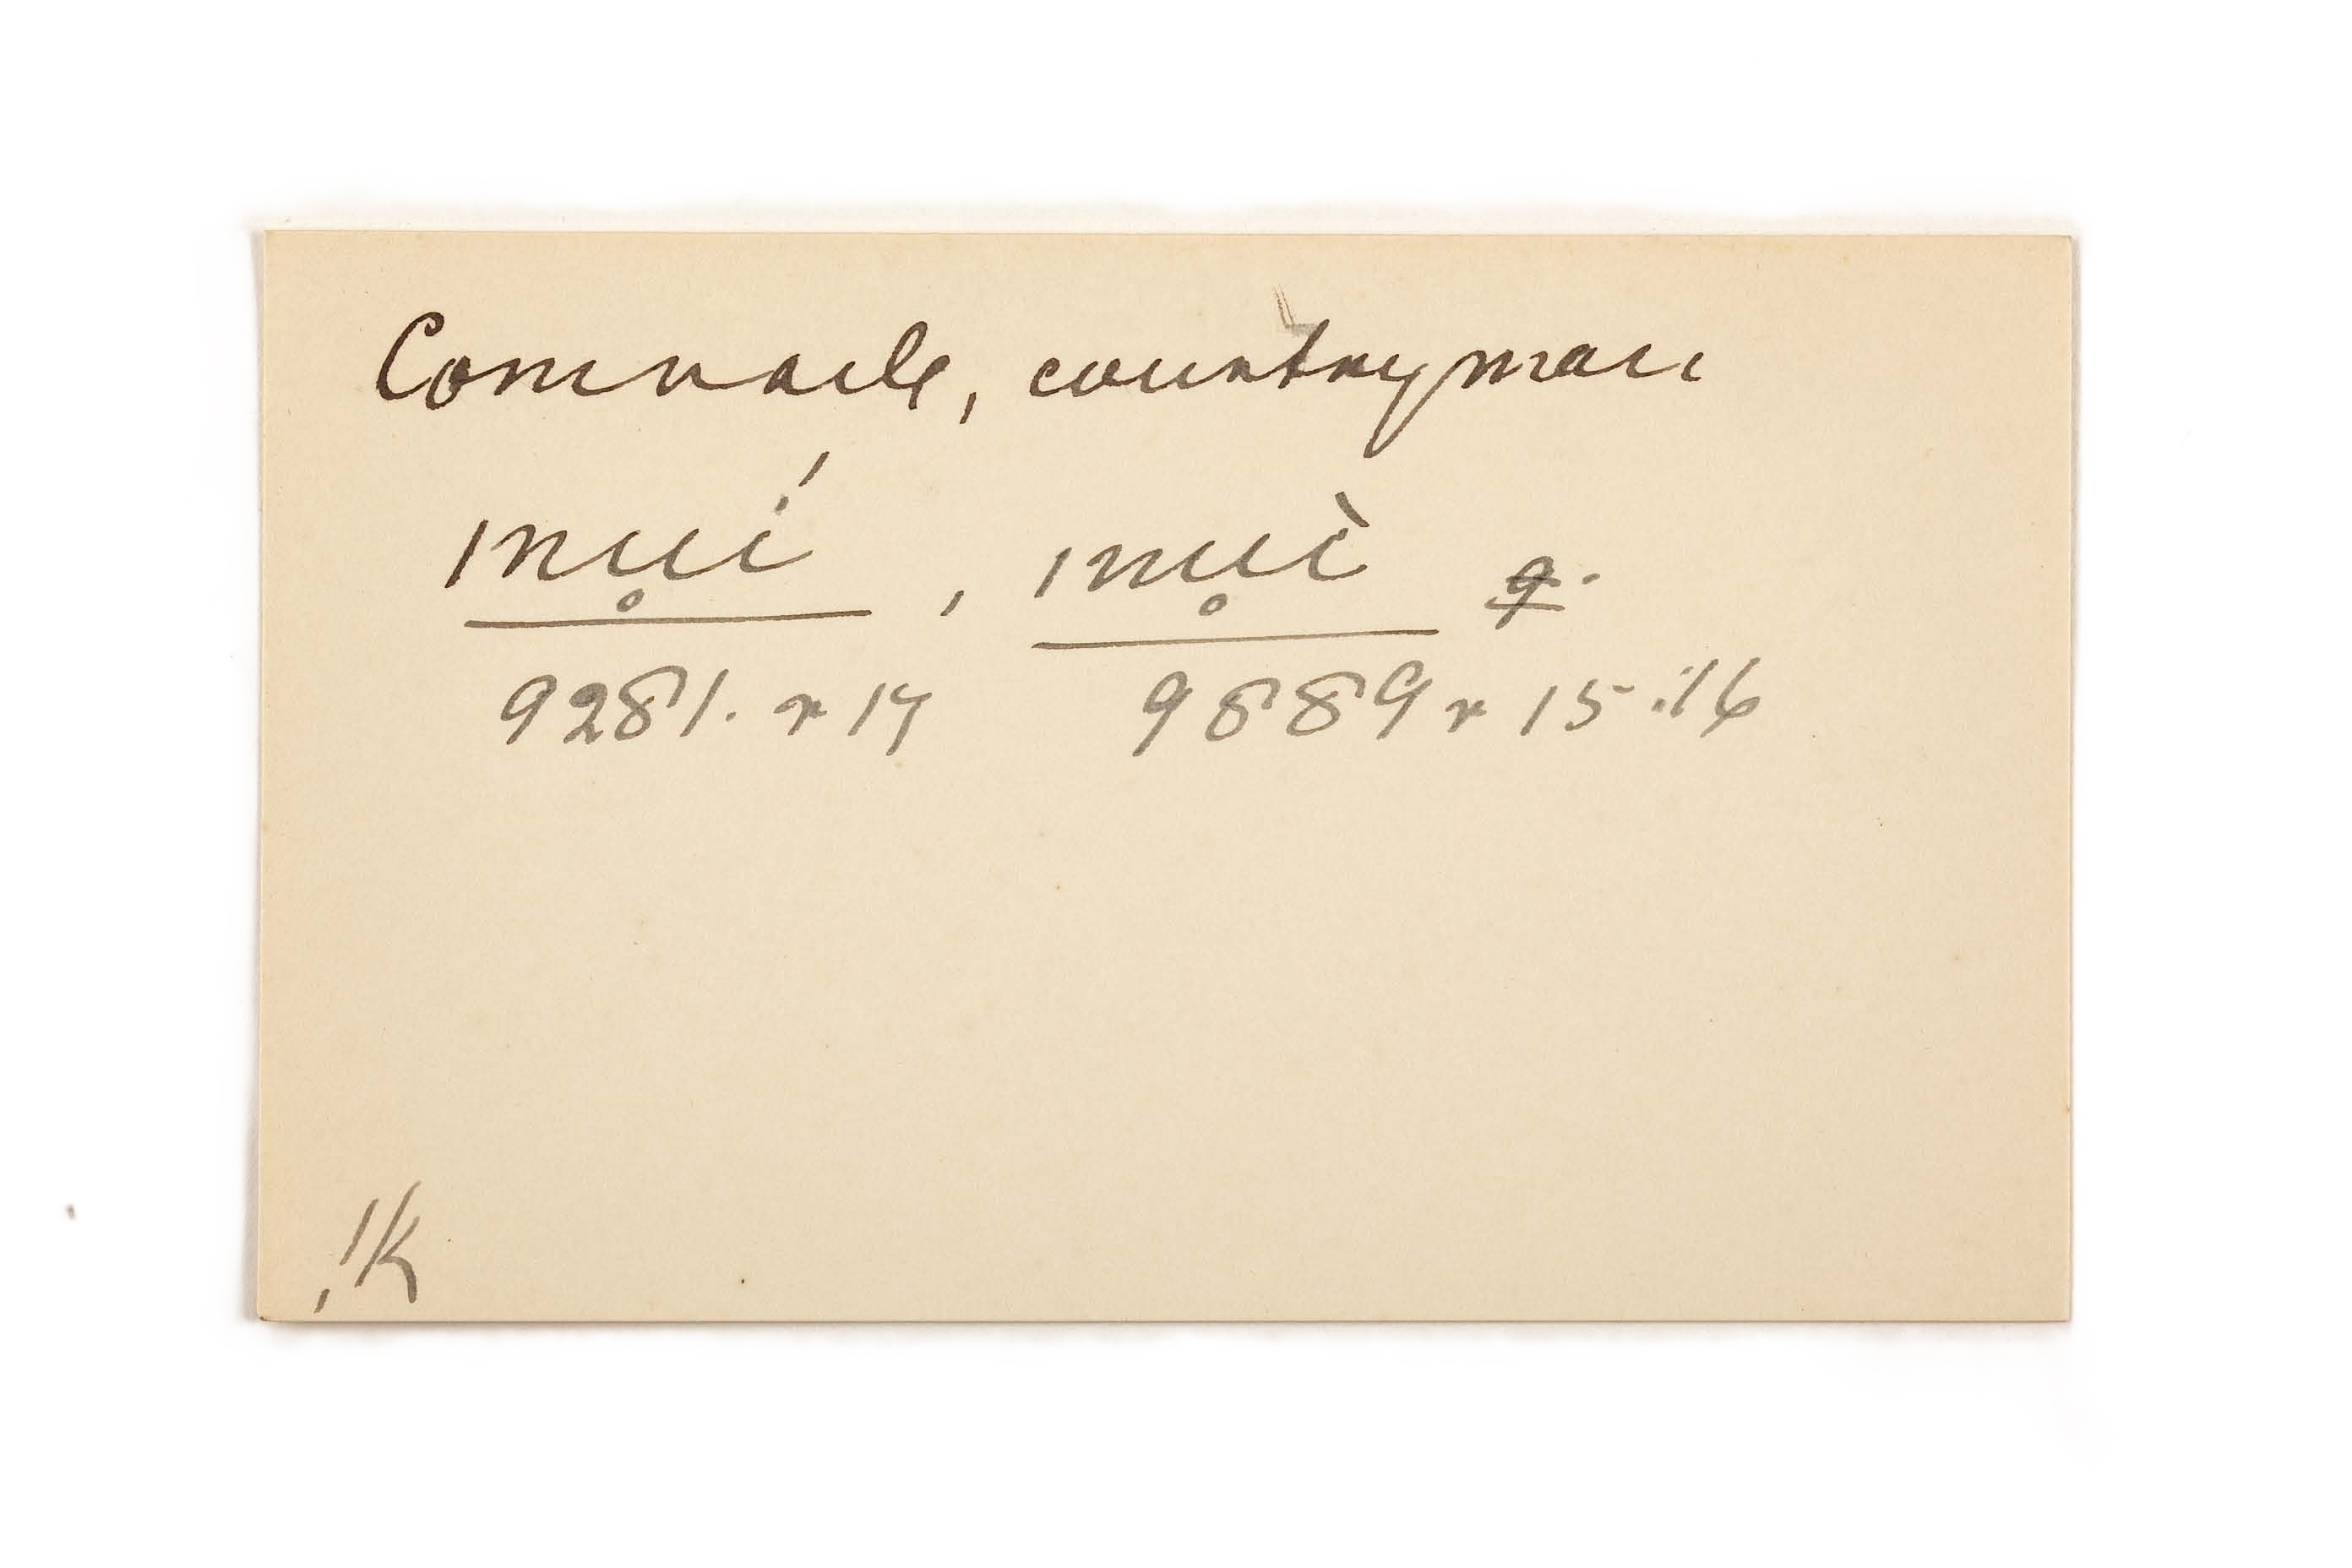 Comrade, countryman
ınu̥í , ınu̥ì q.
9281. r 17 9889 r 15.16
,ǀK